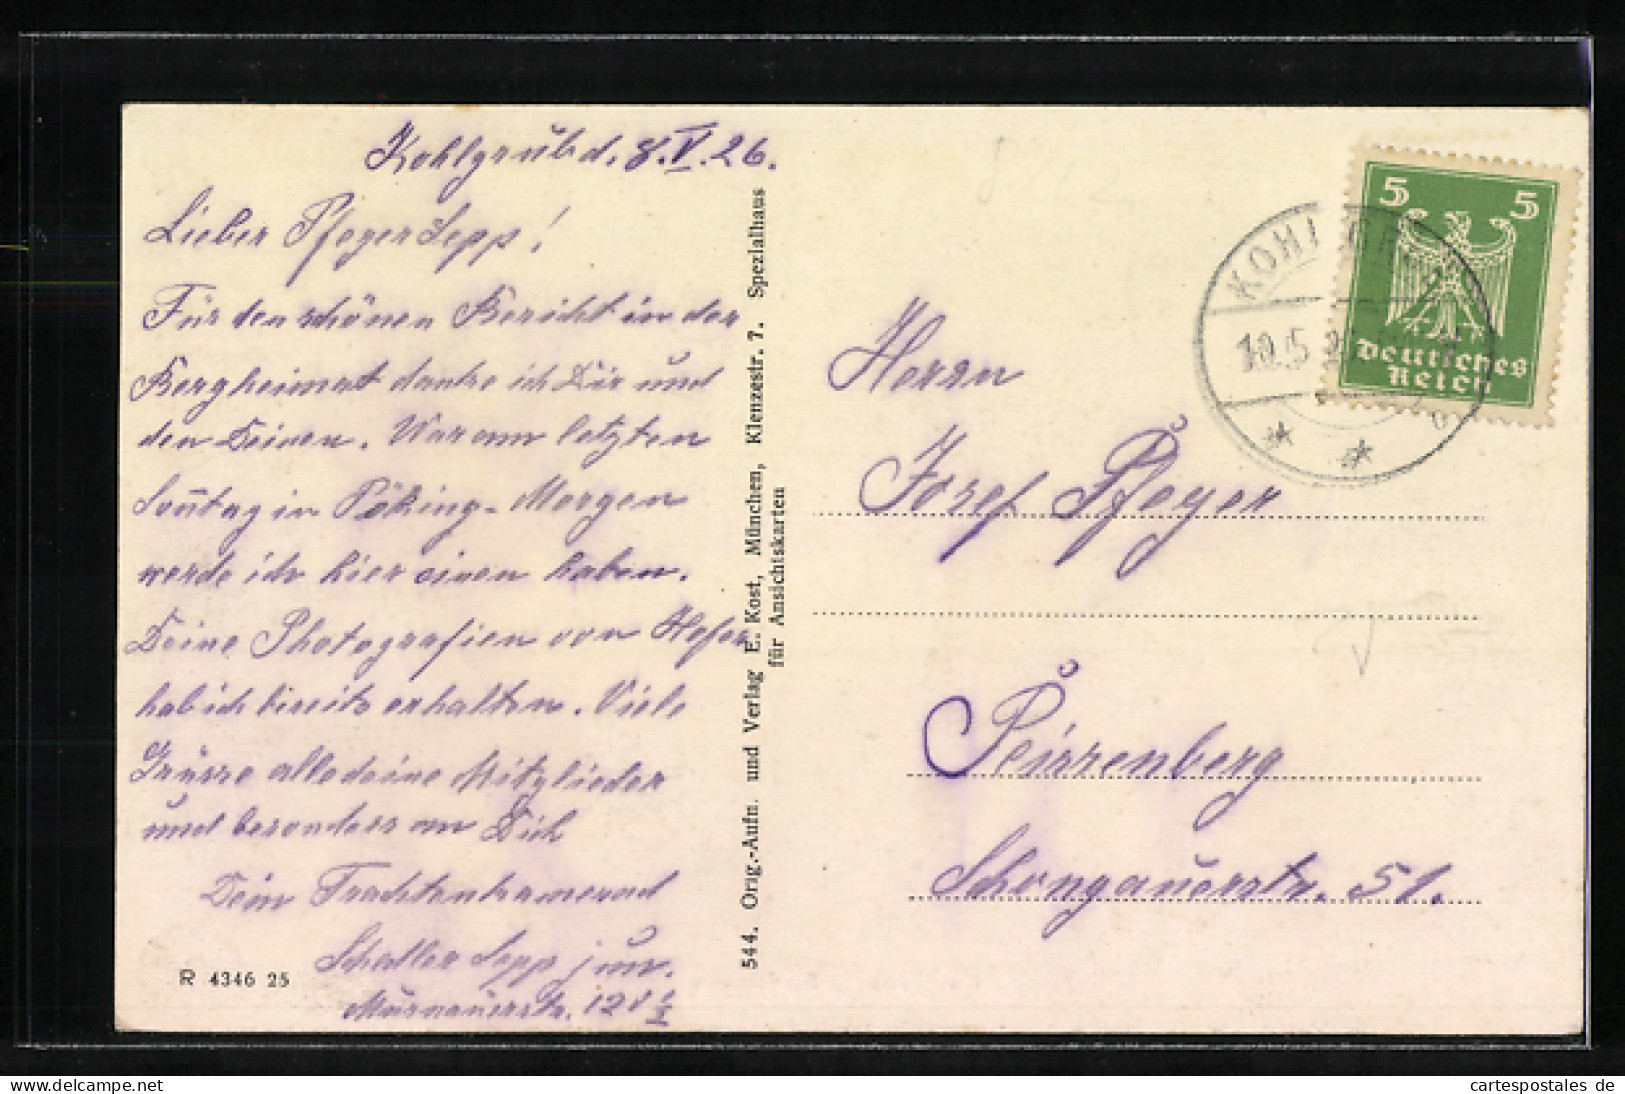 Kohlgrub d. 8.V.26.
Lieber Pfeyer Sepp!
Für den schönen Bericht in der
Bergheimat danke ich Dir und
den Deinen. War am letzten
Sonntag in Pöking. Morgen
werde ich hier einen haben.
Deine Photografien von Hofer
hab ich bereits erhalten. Viele
Grüsse alle deine Mitglieder
und besonders an Dich
Dein Trachtenkamerad
Schaller Sepp jun.
Murnauerstr. 121
R 4346 25
544. Orig.-Aufn. und Verlag E. Kost, München, Klenzestr. 7. Spezialhaus
für Ansichtskarten
5 5
Deutsches
Reich
KOHLGRUB
10.5.26
Herrn
Josef Pfeyer
Peissenberg
Schongauerstr. 51.
cartespostales de
cartespostales.de